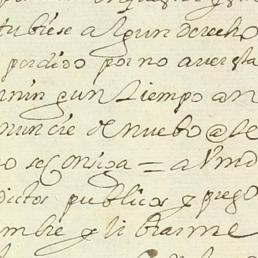 tubiese algun derecho
perdido por no aver sta
ningun tiempo an
nuncie de nuebo @ se
o se consiga = a Vmd
dictos publicos y prego
mbre y librarme